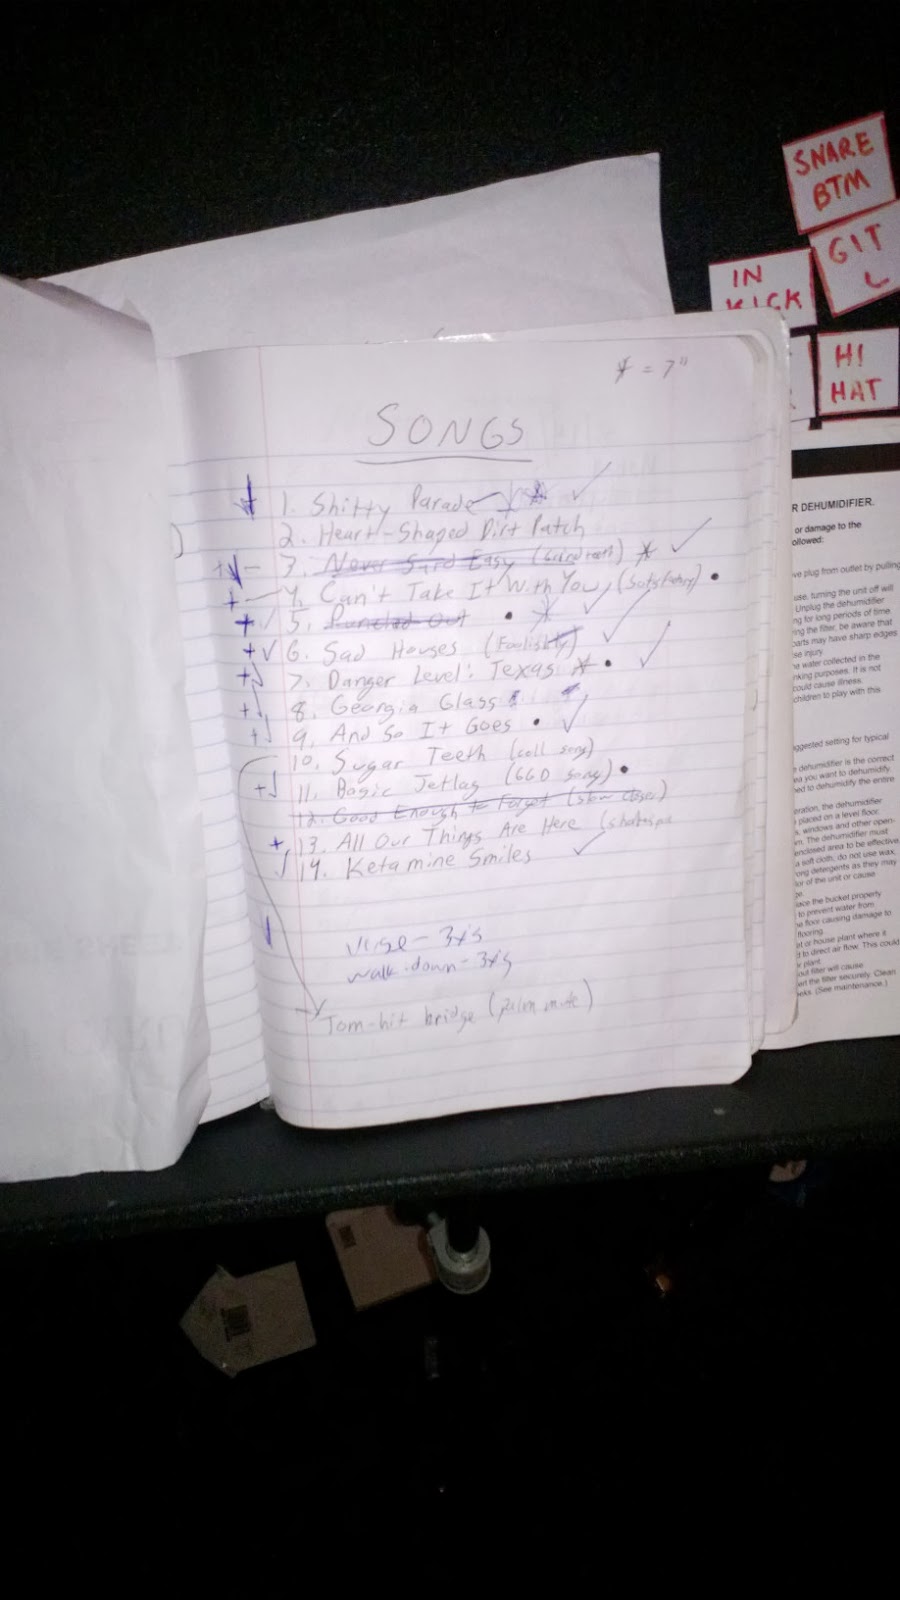 SNARE
BTM
GIT
L
IN
KICK
HI
HAT
* = 7"
SONGS
1. Shitty Parade
2. Heart-Shaped Dirt Patch
3. Never Said Easy
4. Can't Take It With You
5. Punched Out
6. Sad Houses
7. Danger Level: Texas
8. Georgia Glass
9. And So It Goes
10. Sugar Teeth (cell song)
11. Basic Jetlag (GGD song)
12. Good Enough to Forget (slow closer)
13. All Our Things Are Here
14. Ketamine Smiles
verse - 3x's
walk-down - 3x's
Tom-hit bridge (palm mute)
R DEHUMIDIFIER.
or damage to the
ollowed:
ve plug from outlet by pulling
use, turning the unit off will
Unplug the dehumidifier
ng for long periods of time.
ng the filter, be aware that
parts may have sharp edges
se injury.
e water collected in the
nking purposes. It is not
could cause illness.
children to play with this
ggested setting for typical
e dehumidifier is the correct
ea you want to dehumidify.
ed to dehumidify the entire
eration, the dehumidifier
placed on a level floor.
, windows and other open-
m. The dehumidifier must
enclosed area to be effective
a soft cloth; do not use wax,
ong detergents as they may
or of the unit or cause
ge.
lace the bucket properly
to prevent water from
he floor causing damage to
flooring.
at or house plant where it
t to direct air flow. This could
r plant.
out filter will cause
ert the filter securely. Clean
eeks. (See maintenance.)